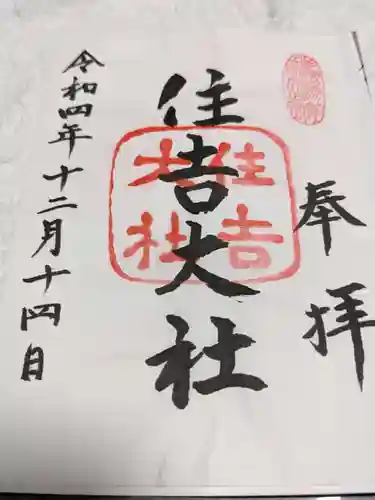 奉拝
住吉大社
住吉大社
令和四年十二月十四日